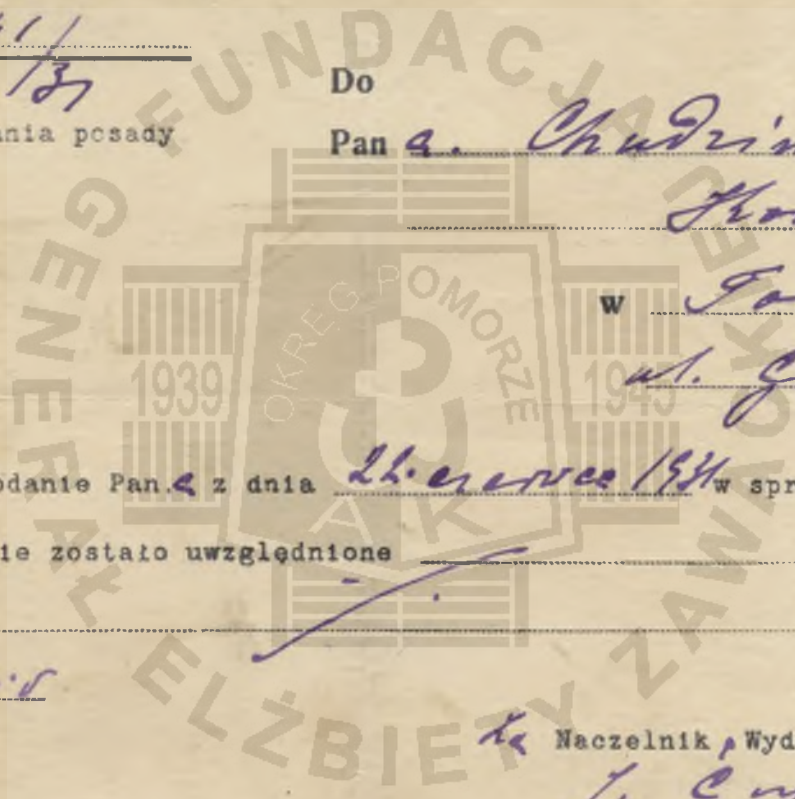 /31
ania posady
Do
Pan a. Chudziń
w To
ul. G
odanie Pan.a z dnia 22. czerwca 1931 w spr
ie zostało uwzględnione
Za Naczelnik, Wyd
FUNDACJA
GENERAŁ ELŻBIETY ZAWACKIEJ
OKRĘG POMORZE
1939
1945
AK